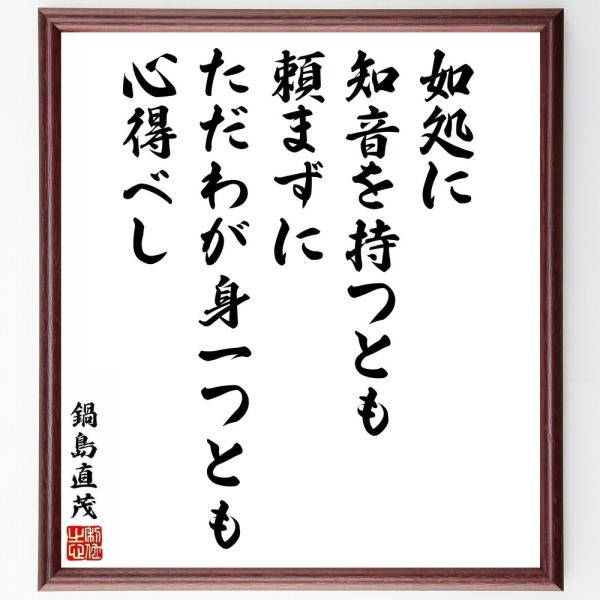 如処に
知音を持つとも
頼まずに
ただわが身一つとも
心得べし
鍋島直茂